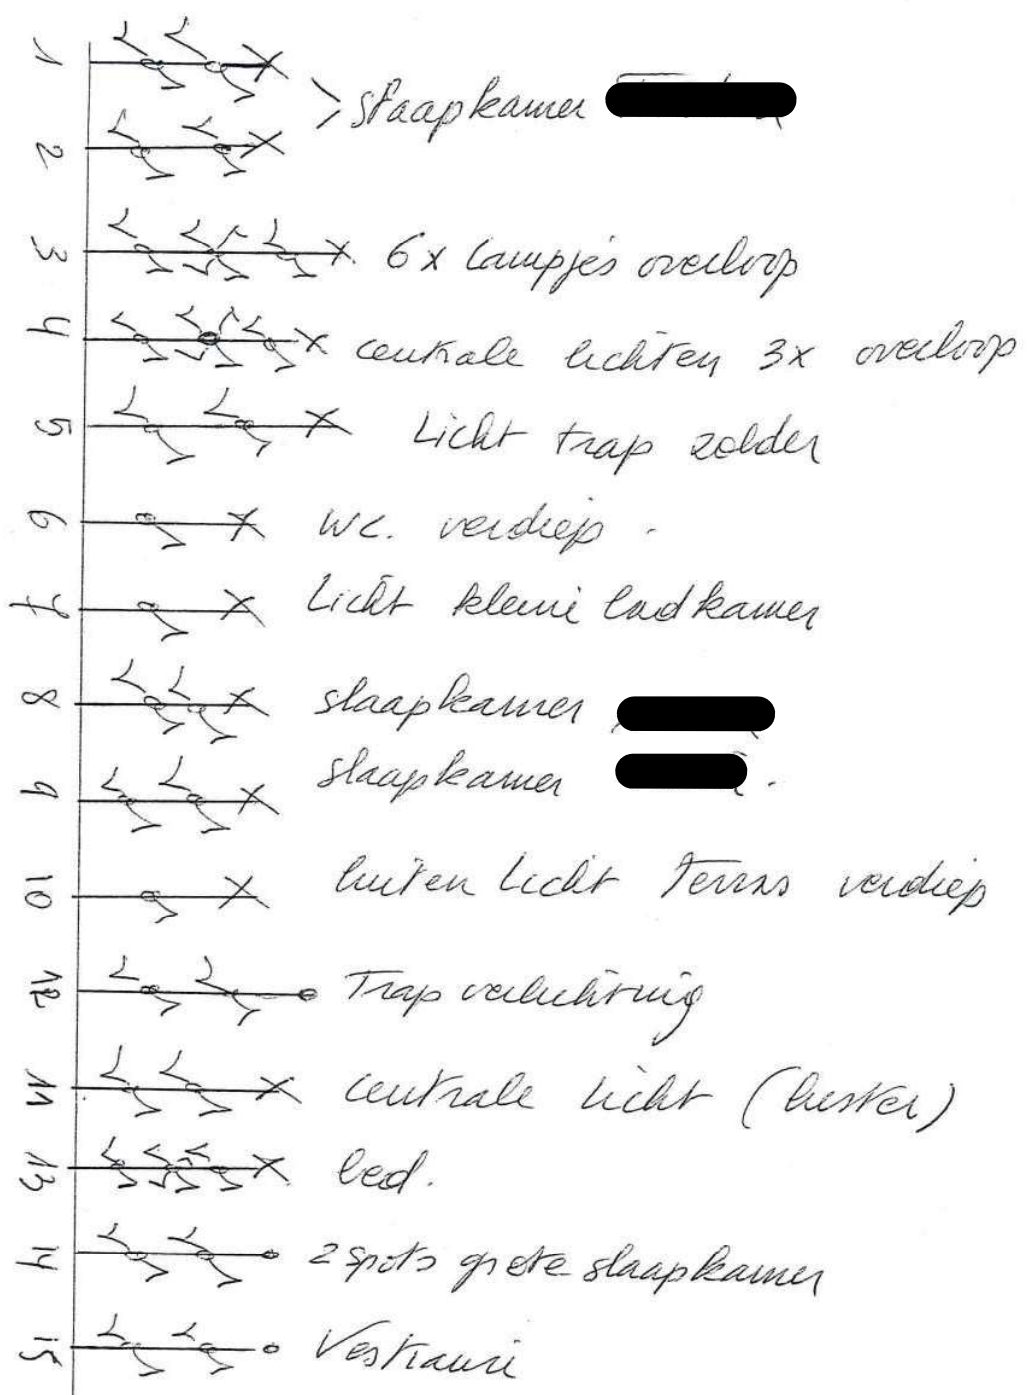 1
> slaapkamer
2
3 6x lampjes overloop
4 centrale lichten 3x overloop
5 Licht trap zolder
6 WC. verdiep.
7 Licht kleine badkamer
8 slaapkamer
9 slaapkamer .
10 buiten licht Terras verdiep
12 Trap verlichting
11 centrale licht (luster)
13 bed.
14 2 spots grote slaapkamer
15 Vestiaire